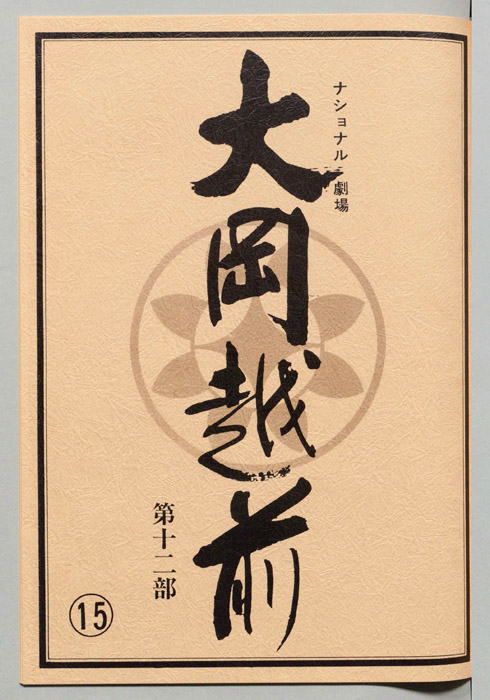 ナショナル劇場
大岡越前
第十二部
⑮